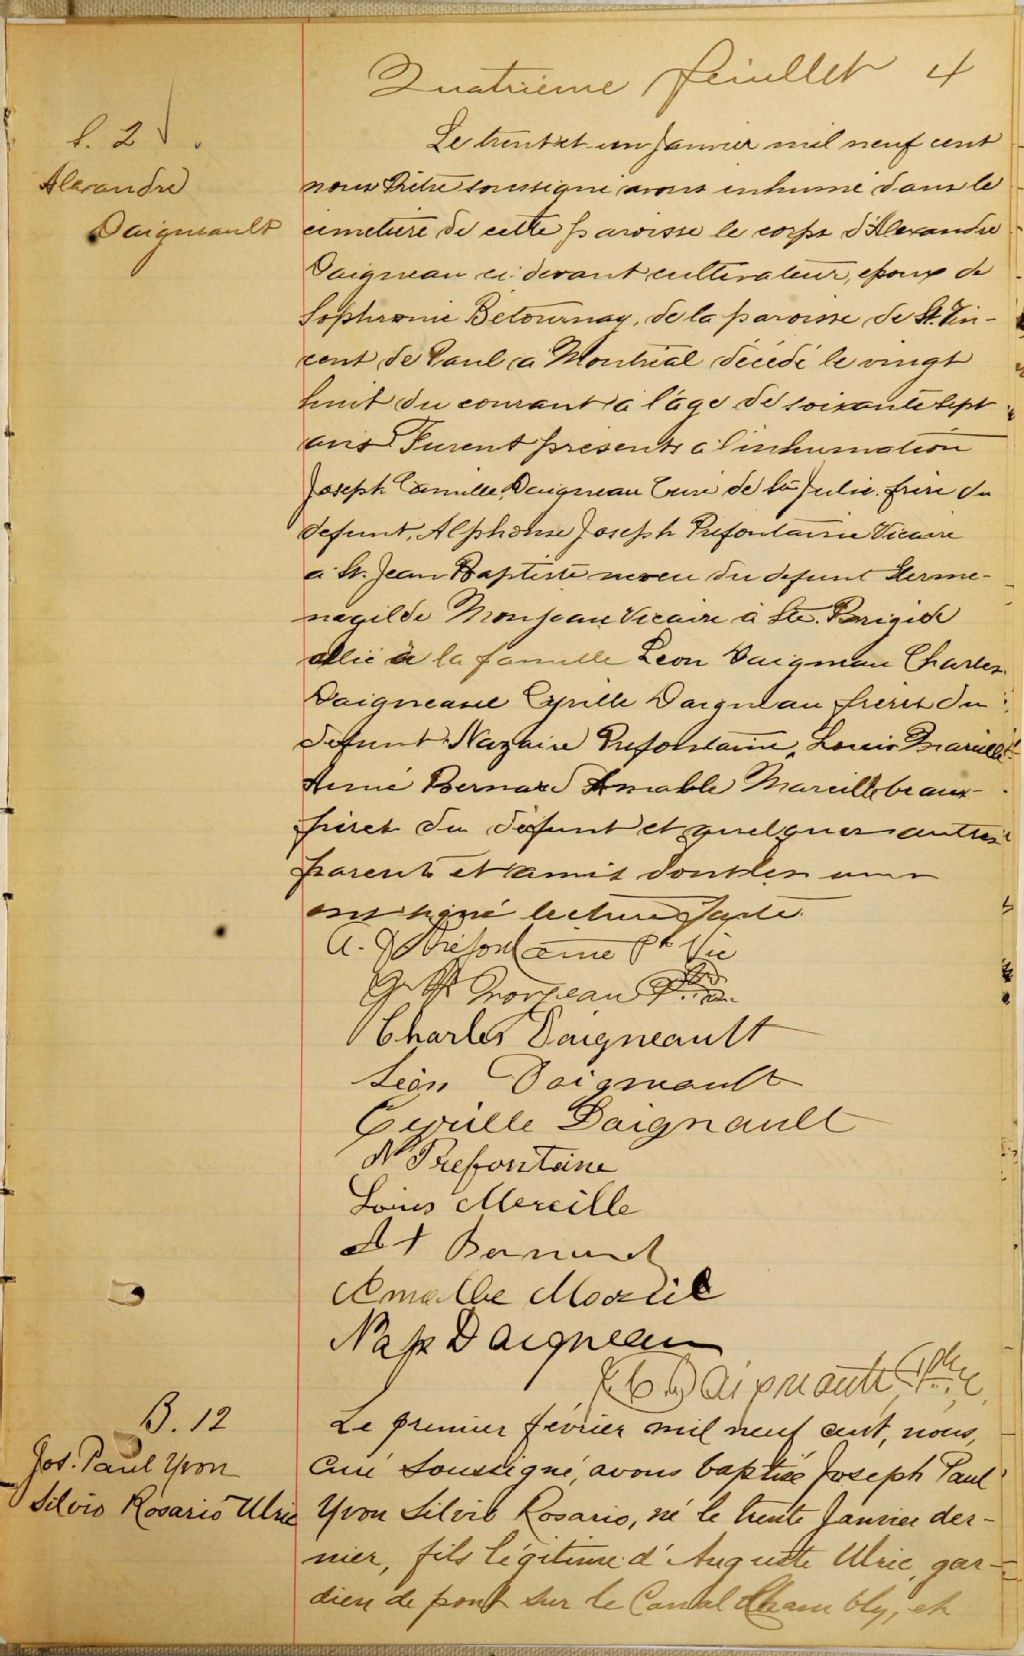 Quatrième feuillet 4
S. 2
Alexandre
Daigneault
Le trent et un Janvier mil neuf cent
nous Prêtre soussigné avons inhumé dans le
cimetière de cette paroisse le corps d'Alexandre
Daigneau ci-devant cultivateur, époux de
Sophronie Betournay, de la paroisse de St. Vin-
cent de Paul à Montréal décédé le vingt
huit du courant a l'âge de soixante sept
ans Furent présents à l'inhumation
Joseph Camille Daigneau Curé de Ste Julie frère du
defunt, Alphonse Joseph Prefontaine Vicaire
à St. Jean Baptiste neveu du defunt Herme-
negilde Monjeau Vicaire à Ste. Brigide
allié à la famille Léon Daigneau Charles
Daigneault Cyrille Daigneau frères du
defunt Nazaire Prefontaine, Louis Mareille
Aimé Bernard Amable Mareille beaux-
frères du défunt et quelques autres
parents et amis dont les uns
ont signé lecture faite.
A. J. Préfontaine Ptr Vic
Monjeau
Charles Daigneault
Léon Daigneault
Cyrille Daignault
N Prefontaine
Louis Mereille
At Bernard
Amable Marcil
Nap Daigneau
J. C. Daigneault, Ptre,
B. 12
Jos. Paul Yvon
Silvio Rosario Ulric
Le premier février mil neuf cent, nous,
curé soussigné, avons baptisé Joseph Paul
Yvon Silvio Rosario, né le trente Janvier der-
nier, fils légitime d'Auguste Ulric, gar-
dien de pont sur le Canal Chambly, et